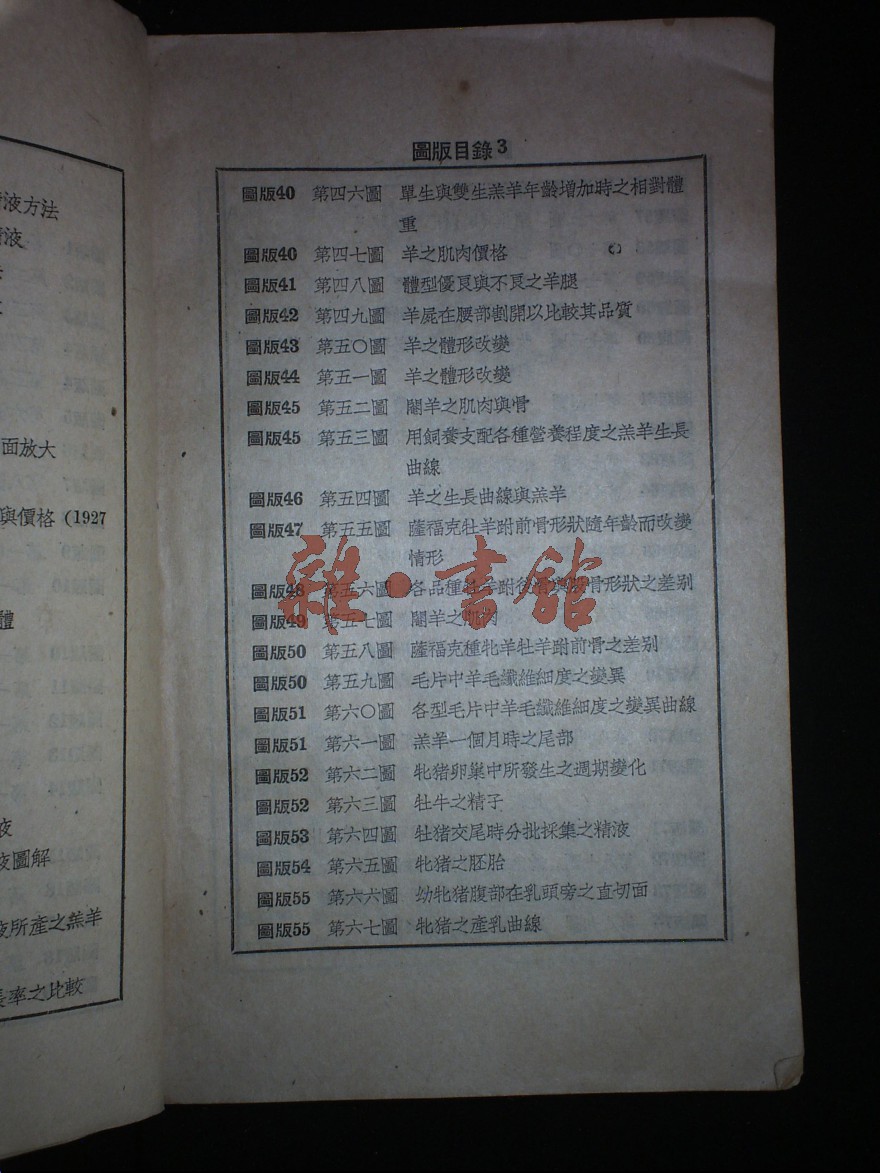 液方法
液
面放大
與價格 (1927
體
液
液圖解
液所產之羔羊
長率之比較
圖版目錄 3
圖版40 第四六圖 單生與雙生羔羊年齡增加時之相對體
重
圖版40 第四七圖 羊之肌肉價格
圖版41 第四八圖 體型優良與不良之羊腿
圖版42 第四九圖 羊屍在腰部割開以比較其品質
圖版43 第五〇圖 羊之體形改變
圖版44 第五一圖 羊之體形改變
圖版45 第五二圖 閹羊之肌肉與骨
圖版45 第五三圖 用飼養支配各種營養程度之羔羊生長
曲線
圖版46 第五四圖 羊之生長曲線與羔羊
圖版47 第五五圖 薩福克牡羊跗前骨形狀隨年齡而改變
情形
圖版48 第五六圖 各品種牡羊跗後骨與脛骨形狀之差别
圖版49 第五七圖 閹羊之肌肉
圖版50 第五八圖 薩福克種牝羊牡羊跗前骨之差别
圖版50 第五九圖 毛片中羊毛纖維細度之變異
圖版51 第六〇圖 各型毛片中羊毛纖維細度之變異曲線
圖版51 第六一圖 羔羊一個月時之尾部
圖版52 第六二圖 牝猪卵巢中所發生之週期變化
圖版52 第六三圖 牡牛之精子
圖版53 第六四圖 牡猪交尾時分批採集之精液
圖版54 第六五圖 牝猪之胚胎
圖版55 第六六圖 幼牝猪腹部在乳頭旁之直切面
圖版55 第六七圖 牝猪之產乳曲線
雜·書館